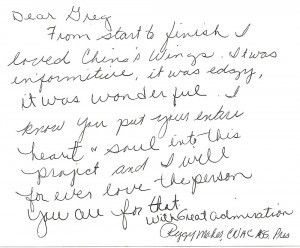 Dear Greg
From start to finish I
loved China's Wings. It was
informitive, it was edgy,
it was wonderful. I
know you put your entire
heart & soul into this
project and I will
for ever love the person
you are for that
with Great admiration
Peggy Maher, CNAC Pres